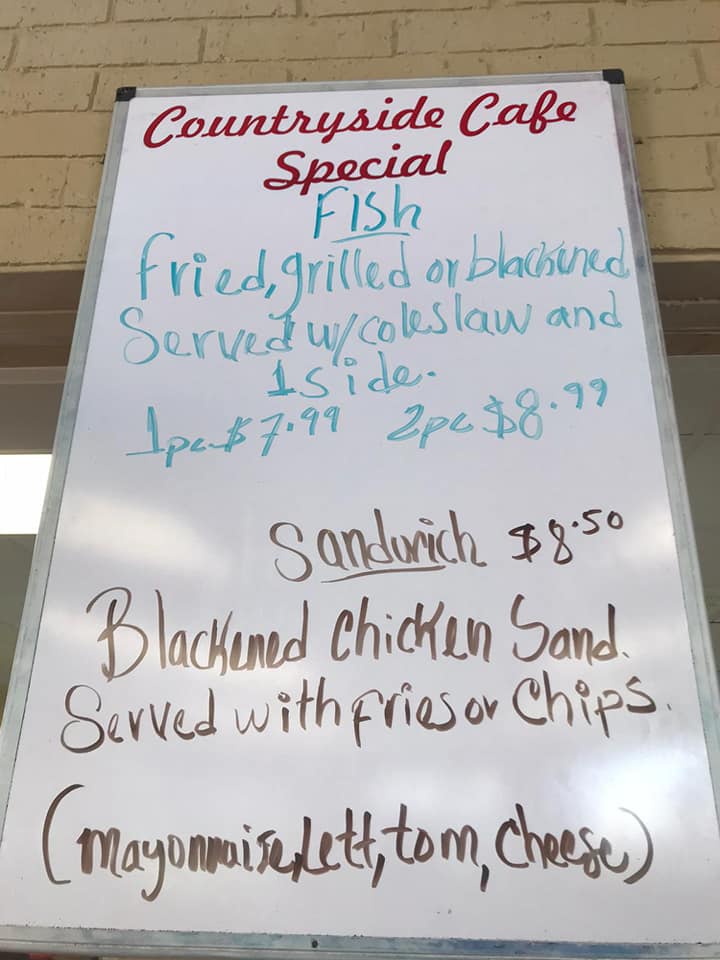 Countryside Cafe
Special
FISh
fried, grilled or blackened
Served w/coleslaw and
1 side.
1pc $7.99 2pc $8.99
Sandwich $8.50
Blackened Chicken Sand.
Served with fries or Chips.
(mayonnaise, Lett, tom, Cheese)